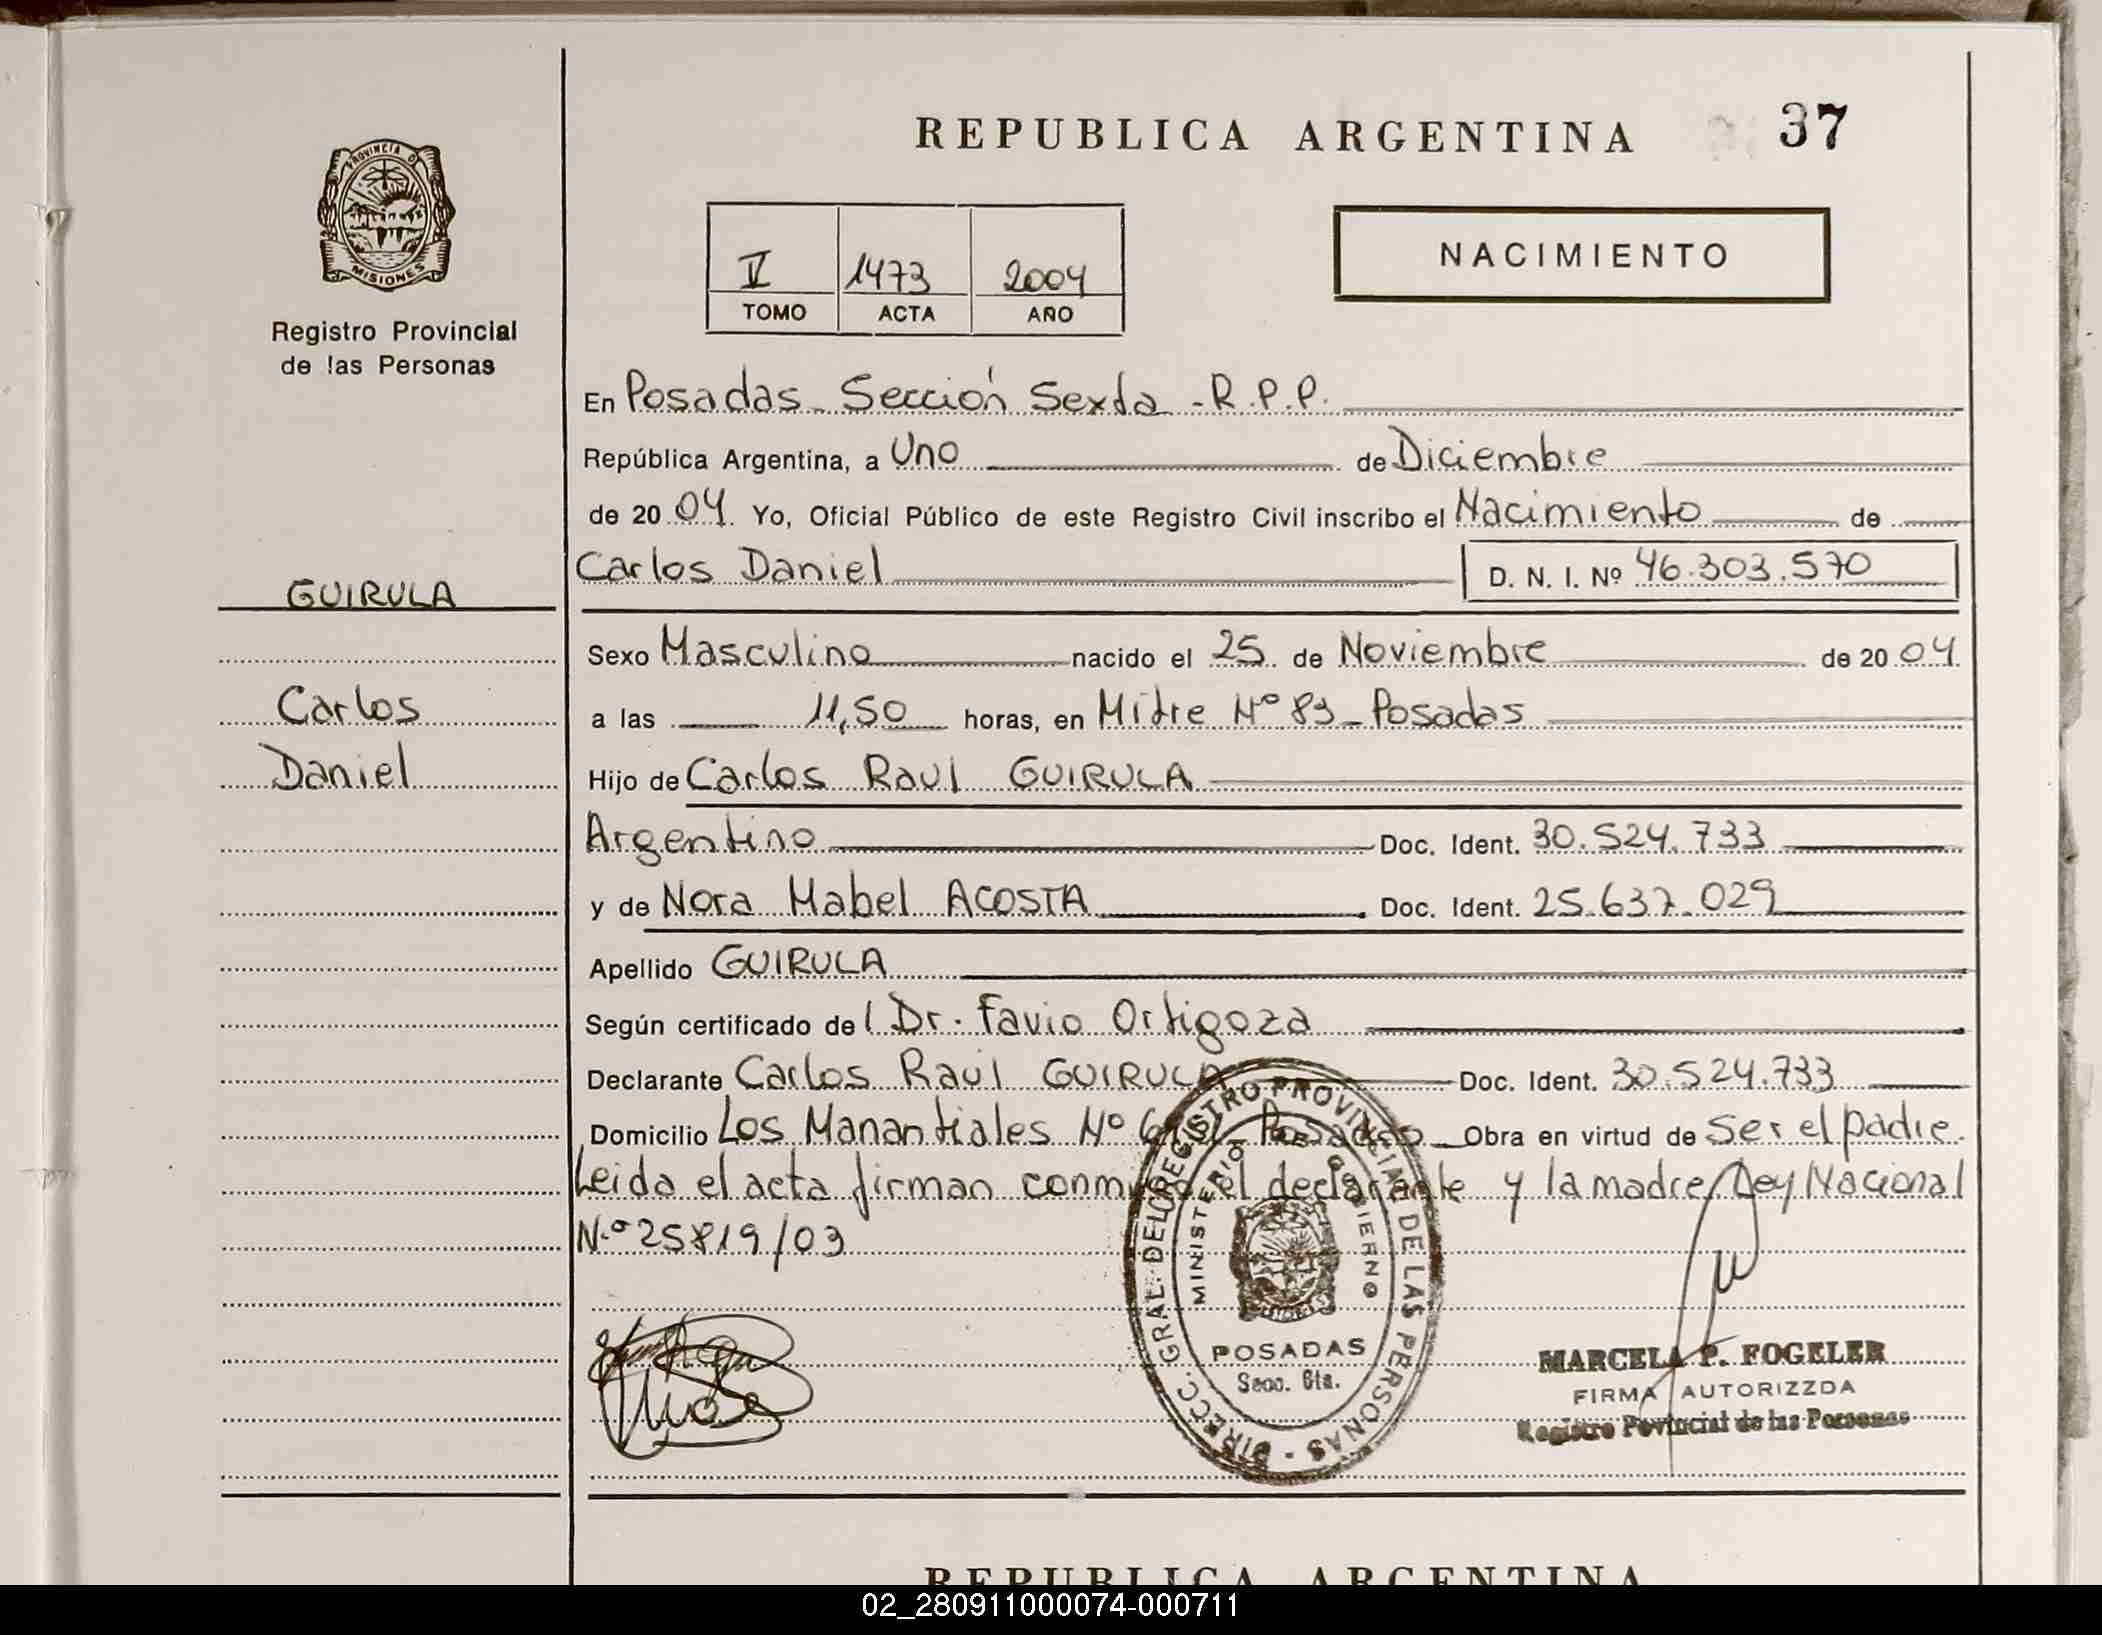 REPUBLICA ARGENTINA 37
PROVINCIA D
MISIONES
Registro Provincial
de las Personas
NACIMIENTO
V 1473 2004
TOMO ACTA AÑO
En Posadas - Sección Sexta - R.P.P.
República Argentina, a Uno de Diciembre
de 20 04. Yo, Oficial Público de este Registro Civil inscribo el Nacimiento de
Carlos Daniel D. N. I. Nº 46.303.570
GUIRULA
Carlos
Daniel
Sexo Masculino nacido el 25 de Noviembre de 20 04
a las 11,50 horas, en Mitre Nº 83 - Posadas
Hijo de Carlos Raul GUIRULA
Argentino Doc. Ident. 30.524.733
y de Nora Mabel ACOSTA Doc. Ident. 25.637.029
Apellido GUIRULA
Según certificado de l Dr. Favio Ortigoza
Declarante Carlos Raúl GUIRULA Doc. Ident. 30.524.733
Domicilio Los Manantiales Nº Posadas Obra en virtud de Ser el padre.
Leida el acta firman conmigo el declarante y la madre Ley Nacional
N.º 25819/03
DIRECC. GRAL. DEL REGISTRO PROVINCIAL DE LAS PERSONAS -
MINISTERIO DE GOBIERNO
POSADAS
Secc. 6ta.
MARCELA P. FOGELER
FIRMA AUTORIZZDA
Registro Povincial de las Personas
REPUBLICA ARGENTINA
02_280911000074-000711